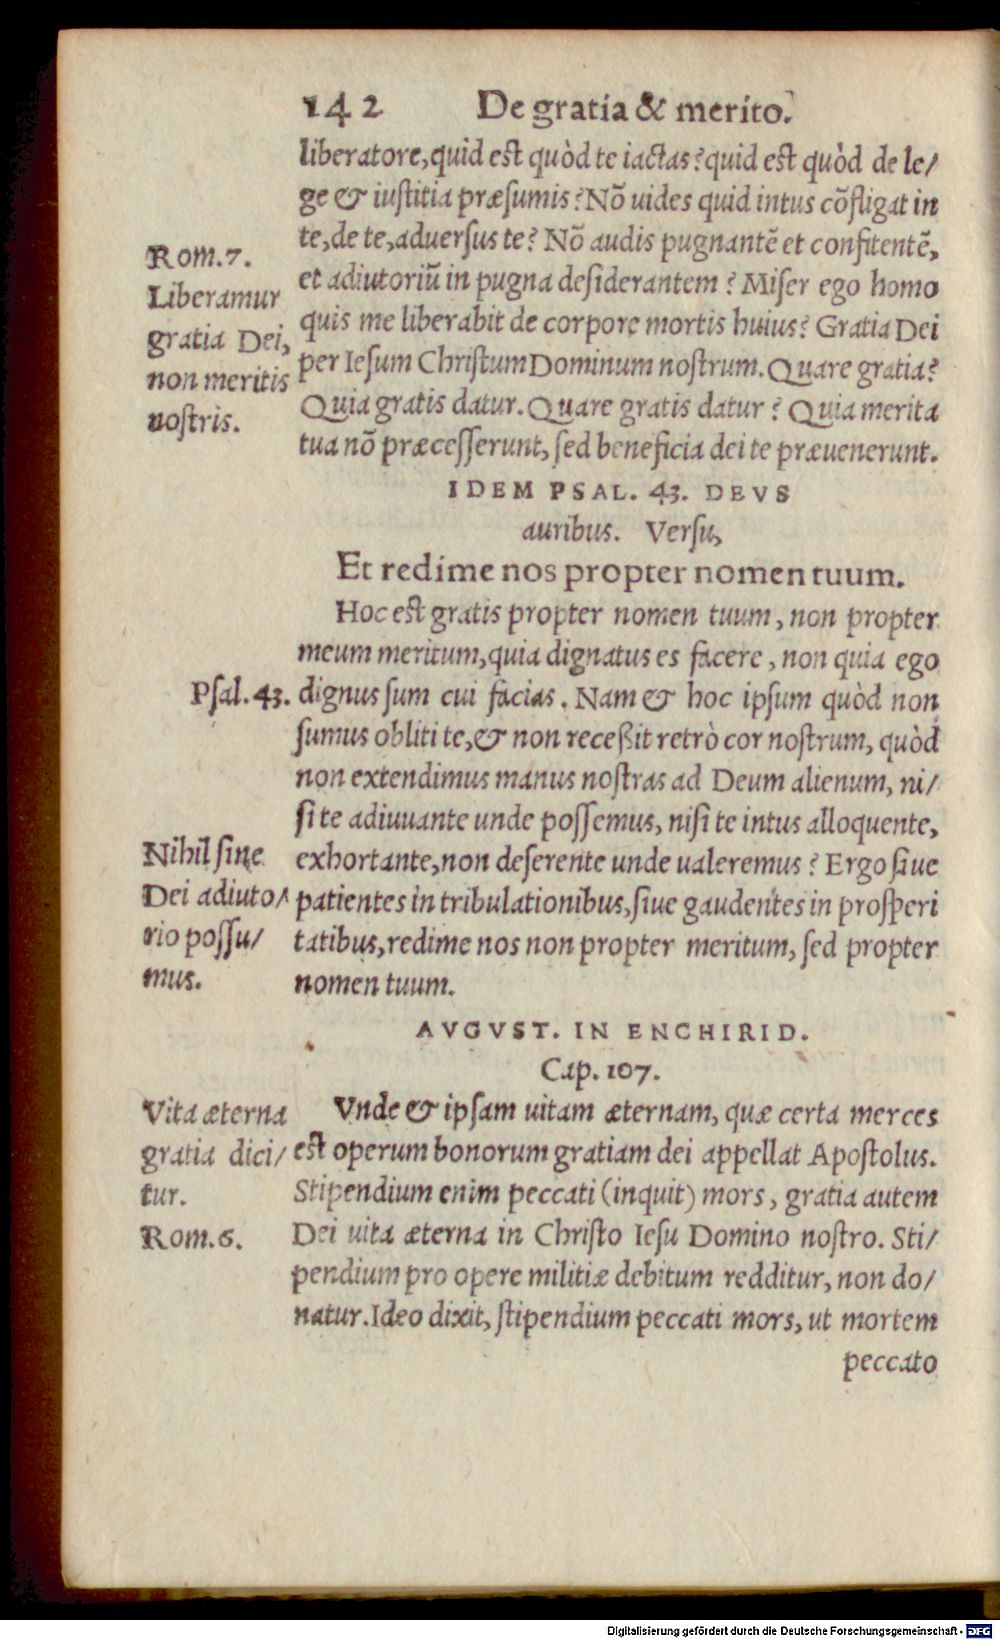 142 De gratia & merito.
liberatore, quid est quòd te iactas? quid est quòd de le/
ge & iustitia præsumis? Nõ uides quid intus cõfligat in
te, de te, aduersus te? Nõ audis pugnantẽ et confitentẽ,
et adiutoriũ in pugna desiderantem? Miser ego homo
quis me liberabit de corpore mortis huius? Gratia Dei
per Iesum Christum Dominum nostrum. Quare gratia?
Quia gratis datur. Quare gratis datur? Quia merita
tua nõ præcesserunt, sed beneficia dei te præuenerunt.
Rom. 7.
Liberamur
gratia Dei,
non meritis
nostris.
IDEM PSAL. 43. DEVS
auribus. Versu,
Et redime nos propter nomen tuum.
Hoc est gratis propter nomen tuum, non propter
meum meritum, quia dignatus es facere, non quia ego
dignus sum cui facias. Nam & hoc ipsum quòd non
sumus obliti te, & non receßit retrò cor nostrum, quòd
non extendimus manus nostras ad Deum alienum, ni/
si te adiuuante unde possemus, nisi te intus alloquente,
exhortante, non deserente unde ualeremus? Ergo siue
patientes in tribulationibus, siue gaudentes in prosperi
tatibus, redime nos non propter meritum, sed propter
nomen tuum.
Psal. 43.
Nihil sine
Dei adiuto/
rio possu/
mus.
AVGVST. IN ENCHIRID.
Cap. 107.
Vnde & ipsam uitam æternam, quæ certa merces
est operum bonorum gratiam dei appellat Apostolus.
Stipendium enim peccati (inquit) mors, gratia autem
Dei uita æterna in Christo Iesu Domino nostro. Sti/
pendium pro opere militiæ debitum redditur, non do/
natur. Ideo dixit, stipendium peccati mors, ut mortem
peccato
Vita æterna
gratia dici/
tur.
Rom. 6.
Digitalisierung gefördert durch die Deutsche Forschungsgemeinschaft - DFG